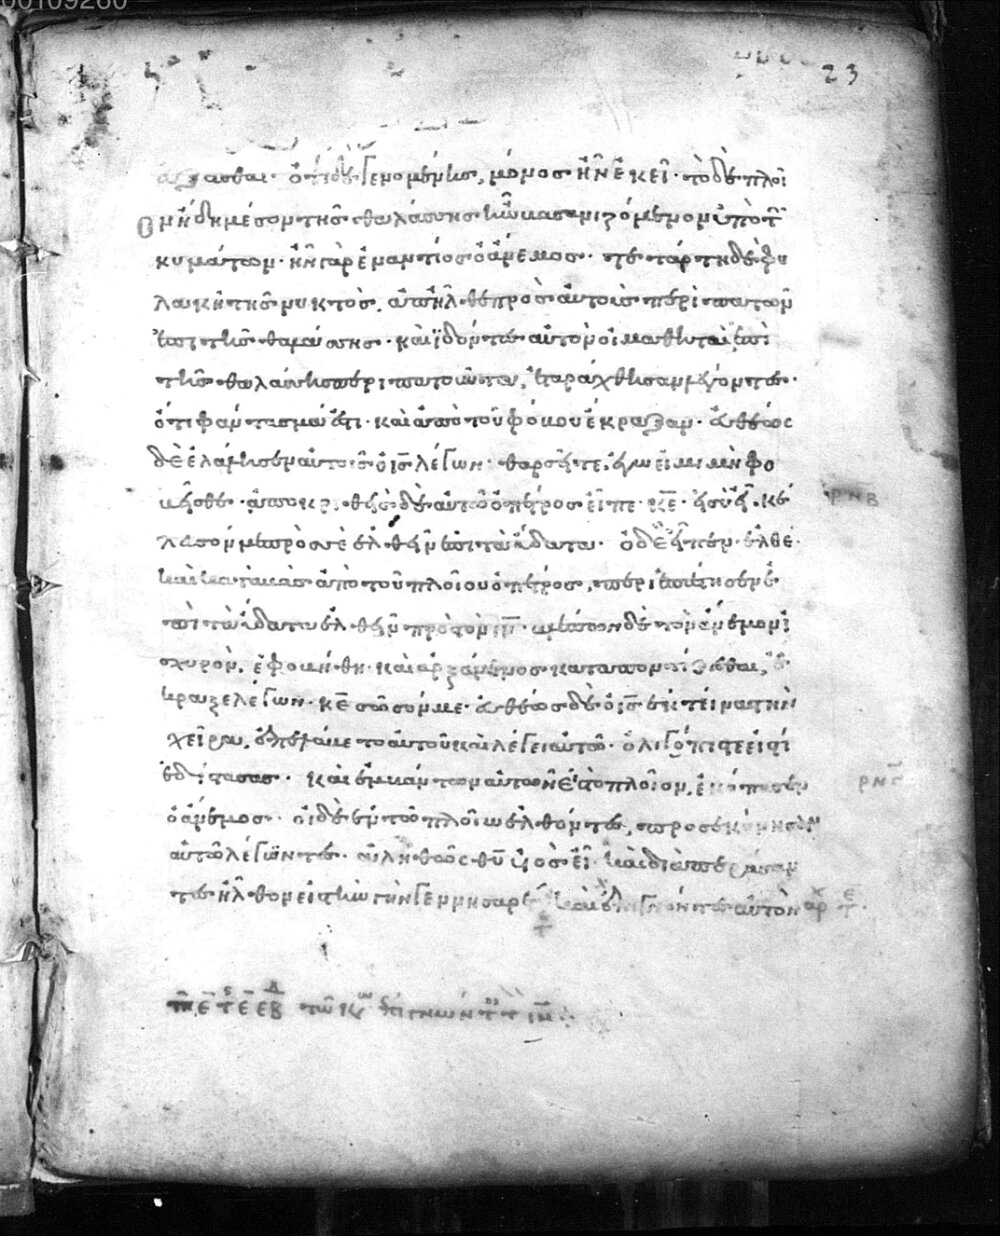 00109260
23
ξασθαι· ὀψίας δὲ γενομένης, μόνος ἦν ἐκεῖ· τὸ δὲ πλοῖ
ον ἤδη μέσον τῆς θαλάσσης ἦν βασανιζόμενον ὑπὸ τῶν
κυμάτων· ἦν γὰρ ἐναντίος ὁ ἄνεμος· τετάρτη δὲ φυ
λακῆ τῆς νυκτὸς, ἀπῆλθε πρὸς αὐτοὺς περιπατῶν
ἐπὶ τῆς θαλάσσης· καὶ ἰδόντες αὐτὸν οἱ μαθηταὶ ἐπὶ
τὴν θάλασσαν περιπατοῦντα, ἐταράχθησαν λέγοντες·
ὅτι φάντασμά ἐστι· καὶ ἀπὸ τοῦ φόβου ἔκραξαν· εὐθέως
δὲ ἐλάλησεν αὐτοῖς ὁ ις λέγων· θαρσεῖτε, ἐγώ εἰμι μὴ φο
βεῖσθε· ἀποκριθεὶς δὲ αὐτῶ ὁ πέτρος εἶπε· κε· εἰ σὺ εἶ, κέ
ρνβ
λευσόν με πρὸς σὲ ἐλθεῖν ἐπὶ τὰ ὕδατα· ὁ δὲ εἶπεν· ἐλθέ·
καὶ καταβὰς ἀπὸ τοῦ πλοίου ὁ πέτρος, περιεπάτησεν ἐ
πὶ τὰ ὕδατα ἐλθεῖν πρὸς τὸν ιν· βλέπων δὲ τὸν ἄνεμον ἰ
σχυρὸν, ἐφοβήθη· καὶ ἀρξάμενος καταποντίζεσθαι, ἔ
κραξε λέγων· κε σῶσόν με· εὐθέως δὲ ὁ ις ἐκτείνας τὴν
χεῖρα, ἐπελάβετο αὐτοῦ καὶ λέγει αὐτῶ· ὀλιγόπιστε εἰς τί
ἐδίστασας· καὶ ἐμβάντων αὐτῶν εἰς τὸ πλοῖον, ἐκόπασεν
ρνγ
ὁ ἄνεμος· οἱ δὲ ἐν τῶ πλοίω ἐλθόντες, προσεκύνησαν
αὐτῶ λέγοντες· ἀληθῶς θυ υἱὸς εἶ· καὶ διαπεράσαν
τες ἦλθον εἰς τὴν γῆν γεννησαρέτ καὶ ἐπιγνόντες αὐτὸν